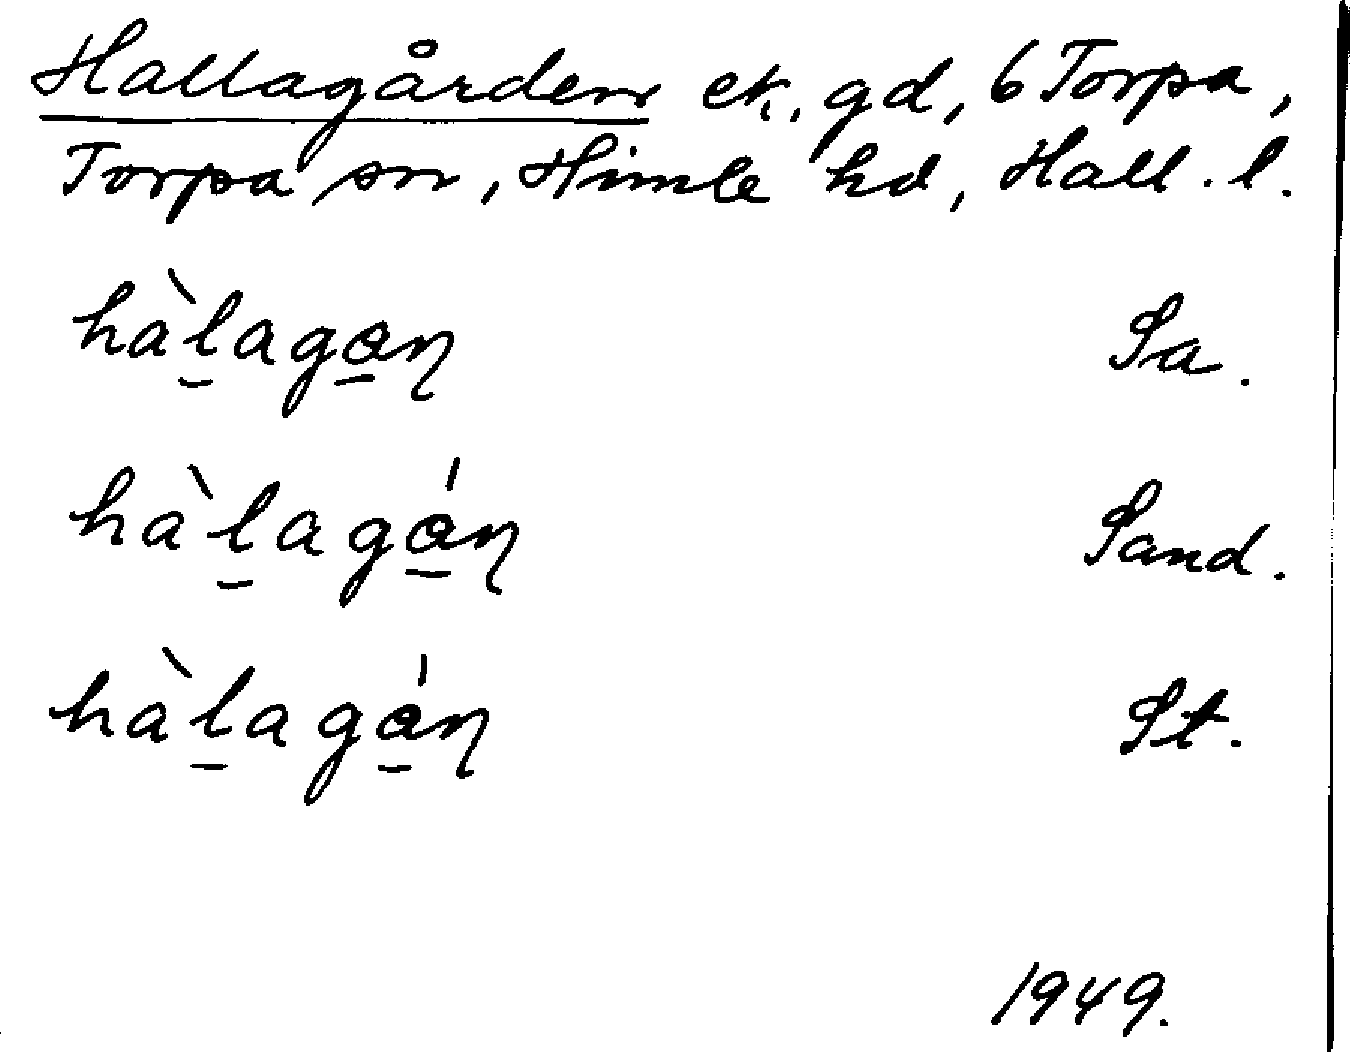 Hallagården ek. gd, 6 Torpa,
Torpa sn, Himle hd, Hall. l.
hàl̠agα̠ɳ Sa.
hàl̠agά̠ɳ Sand.
hàl̠agά̠ɳ St.
1949.